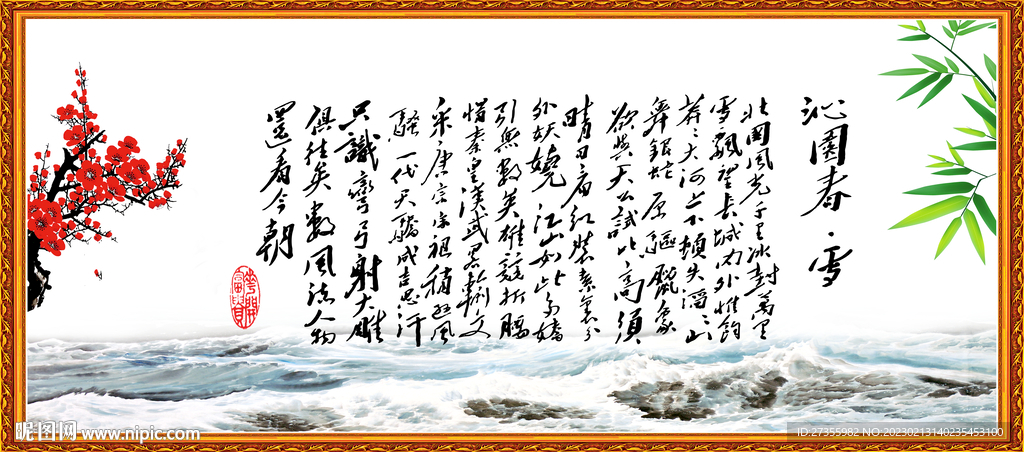 沁園春·雪
北國風光千里冰封萬里
雪飄望長城內外惟餘
莽〻大河上下頓失滔〻山
舞銀蛇原驅臘象
欲與天公試比高須
晴日看紅裝素裹分
外妖嬈江山如此多嬌
引無數英雄競折腰
惜秦皇漢武略輸文
采唐宗宋祖稍遜風
騷一代天驕成吉思汗
只識彎弓射大雕
俱往矣數風流人物
還看今朝
花開富貴
昵图网 www.nipic.com
ID:27355982 NO:20230213140235453100